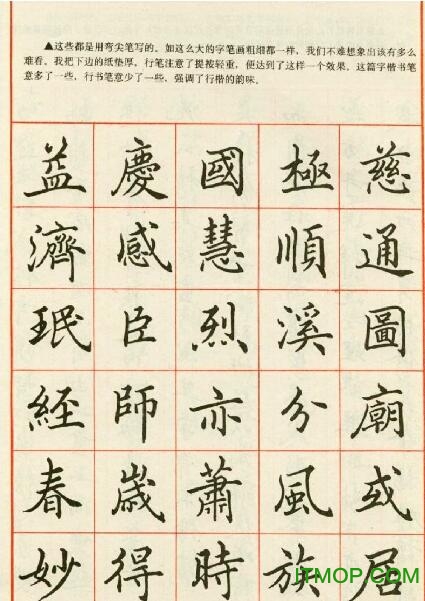 ▲这些都是用弯尖笔写的。如这么大的字笔画粗细都一样，我们不难想象出该有多么
难看。我把下边的纸垫厚，行笔注意了提按轻重，便达到了这样一个效果。这篇字楷书笔
意多了一些，行书笔意少了一些，强调了行楷的韵味。
益慶國極慈
濟感慧順通
珉臣烈溪圖
経師亦分廟
春歲蕭風或
妙得時族居
ITMOP.COM